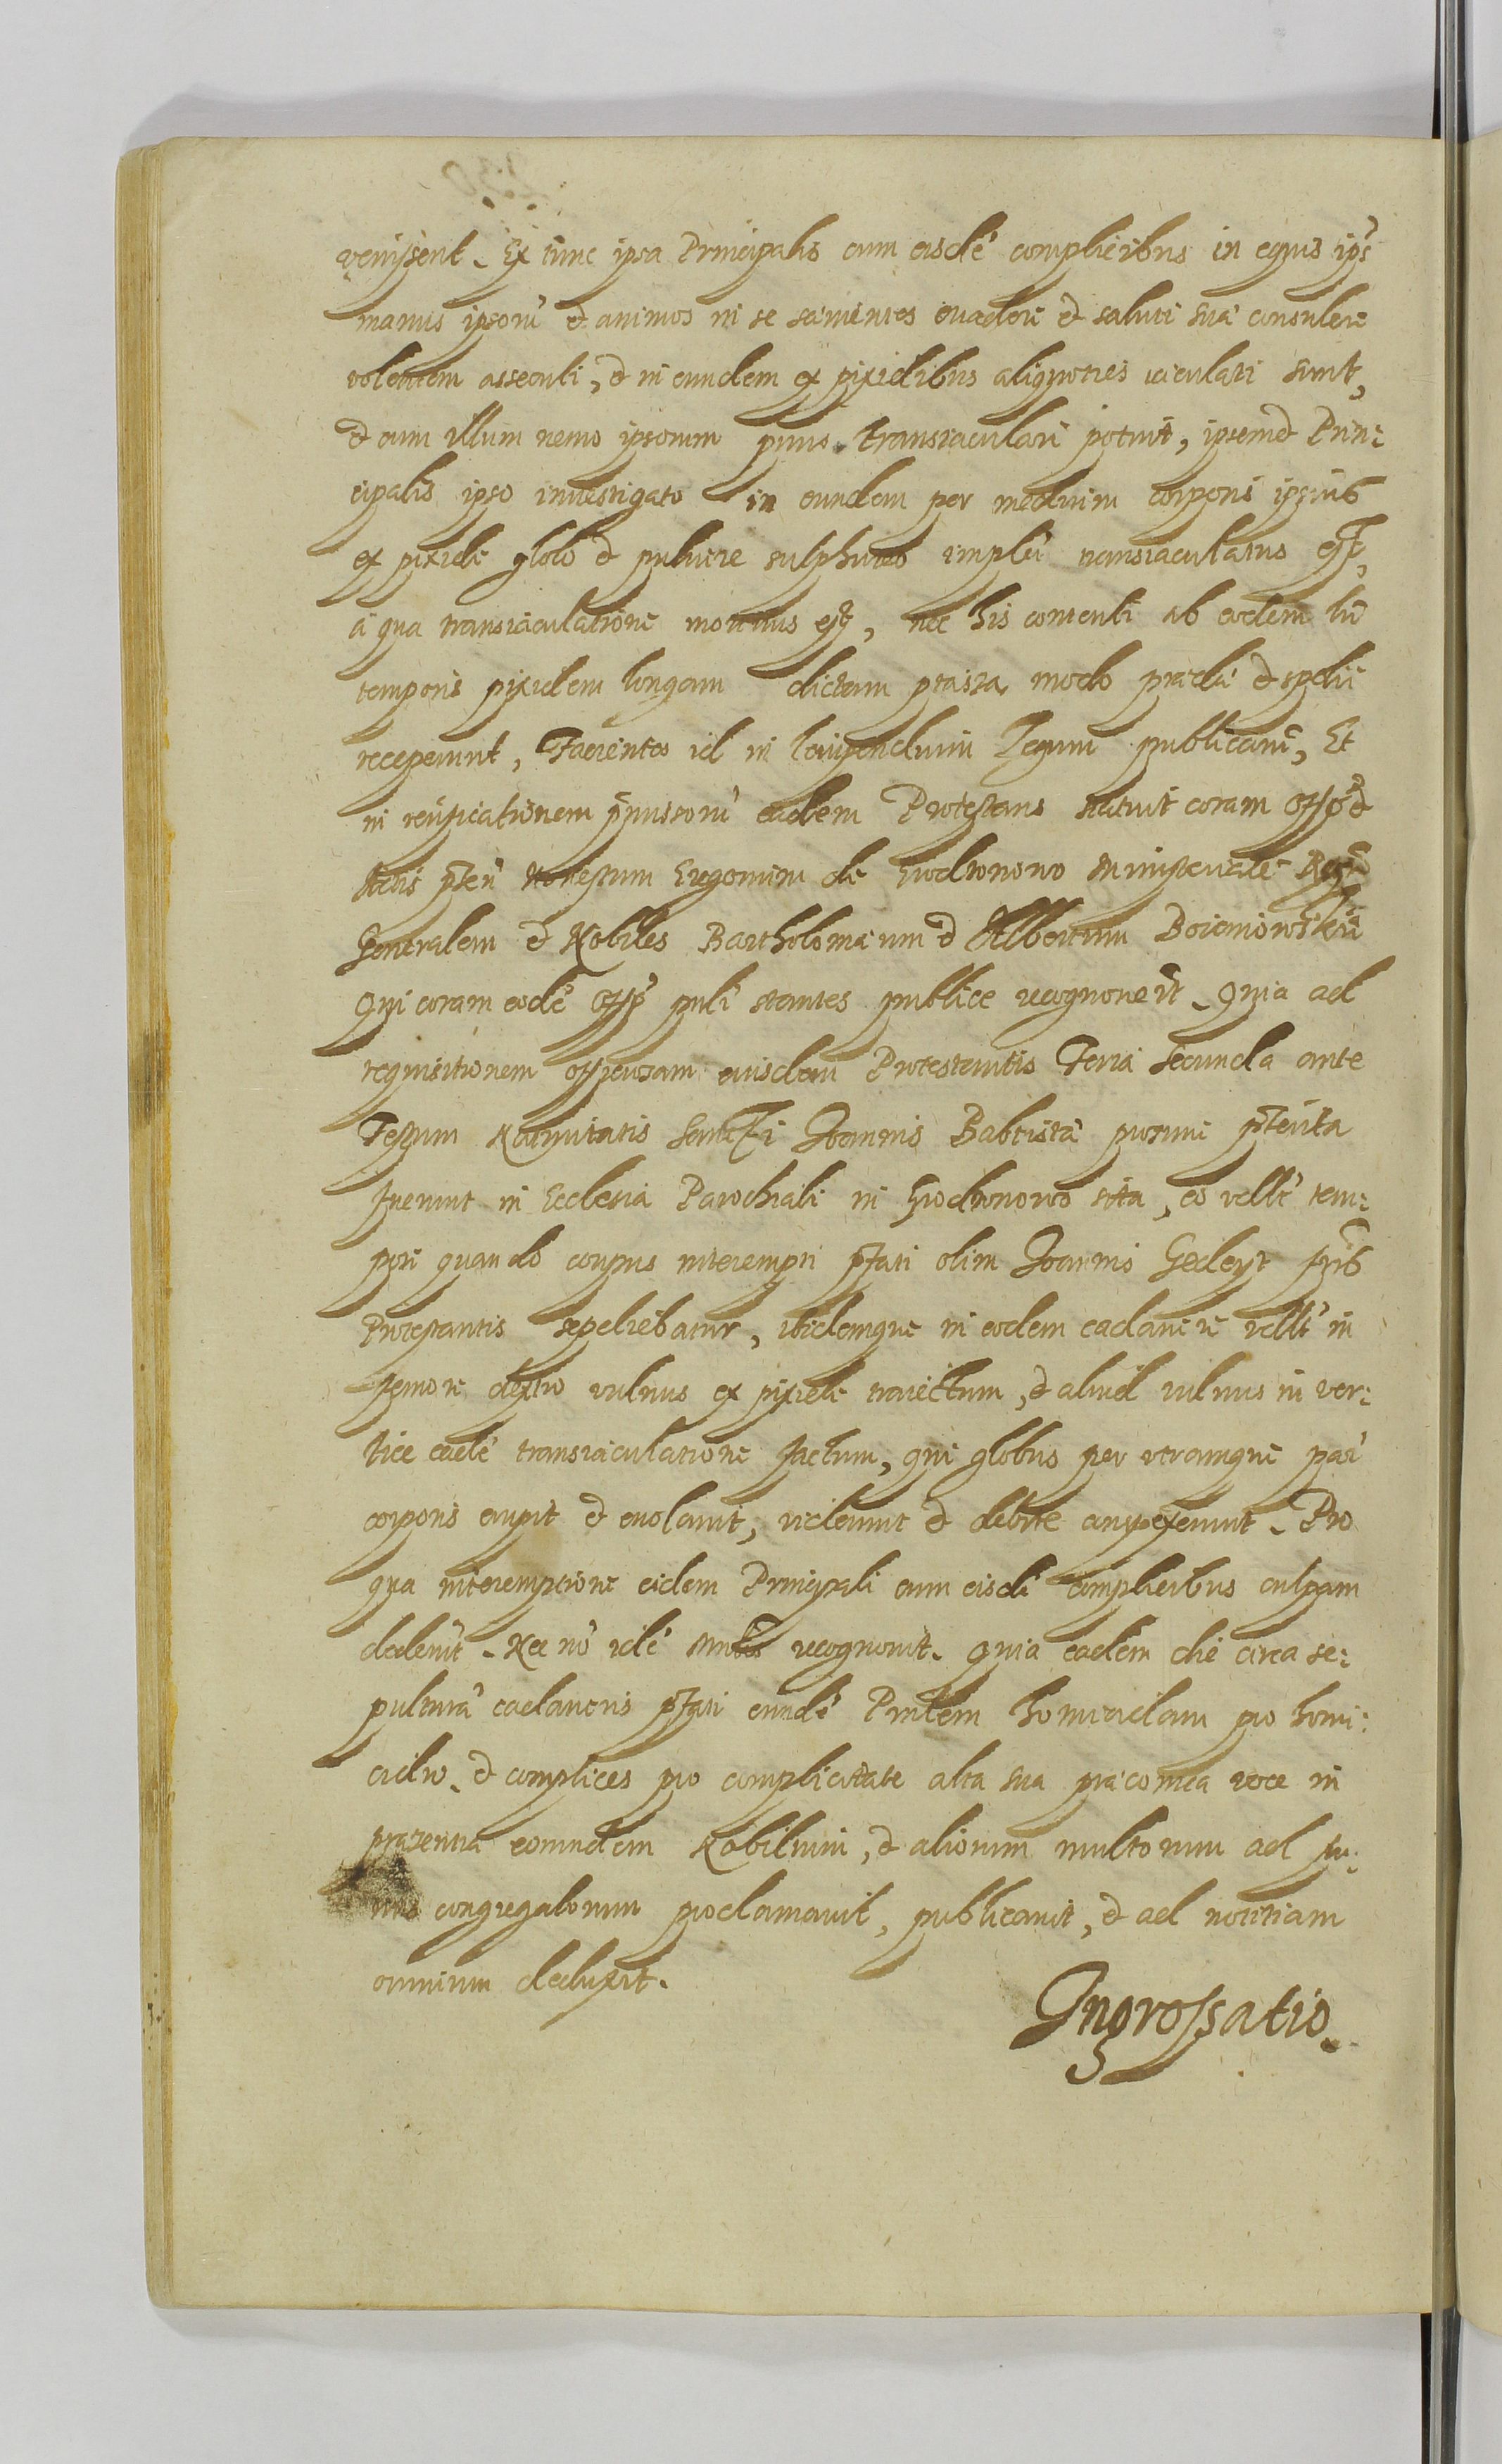 venissent. Ex tunc ipsa Principalis cum eisdē complicibus in equis ips
manus ipsorū et animos in se seuientes euadere et saluti suæ consulere
volentem assecuti, et in eundem ex pixidibus aliquoties iaculati sunt,
et cum illum nemo ipsorum prius transiaculari potuit, ipsemet Prin:
cipalis ipso inuestigato in eundem per medium corporis ipsius
ex pixide globo et puluere sulphureo impleta transiaculatus est,
a qua transiaculatione mortuus est, nec his contenti ab eodem tū
temporis pixidem longam dictam ptassa modo prædæ et spolii
receperunt, Facientes id in leuipendium Legum publicarū, Et
in verificationem præmissorū eadem Protestans statuit coram Offo et
Actis pñtibus Honestum Gregorium de Grodzonowo Ministerialē Regni
Generalem et Nobiles Bartholomæum et Albertum
Qui coram eodē Offo puli stantes publice recognouerūt. Quia ad
requisitionem officiosam eiusdem Protestantis Feria Secunda ante
Festum Natiuitatis Sancti Joannis Babtistæ proxime præterita
fuerunt in Ecclesia Parochiali in Grodzonowo sita, eo vellt tem:
pore quando corpus interempti pfati olim Joannis fris
Protestantis sepeliebatur, ibidemque in eodem cadauere vellt in
femore dextro vulnus ex pixide traiectum, et aliud vulnus in ver:
tice eadē transiaculatione factum, qui globus per utramque par
corporis erupit et euolauit, viderunt et debite conspexerunt. Pro
qua interemptione eidem Principali cum eisdē complicibus culpam
dederūt. Nec nō idē Mintlis recognouit. Quia eadem die circa se:
pulturā cadaueris pfati eundē Prnlem homicidam pro homi:
cidio et complices pro complicitate alta sua præconica voce in
præsentia eorundem Nobilium, et aliorum multorum ad fu:
nus congregatorum proclamauit, publicauit, et ad notitiam
omnium deduxit.
Ingrossatio.